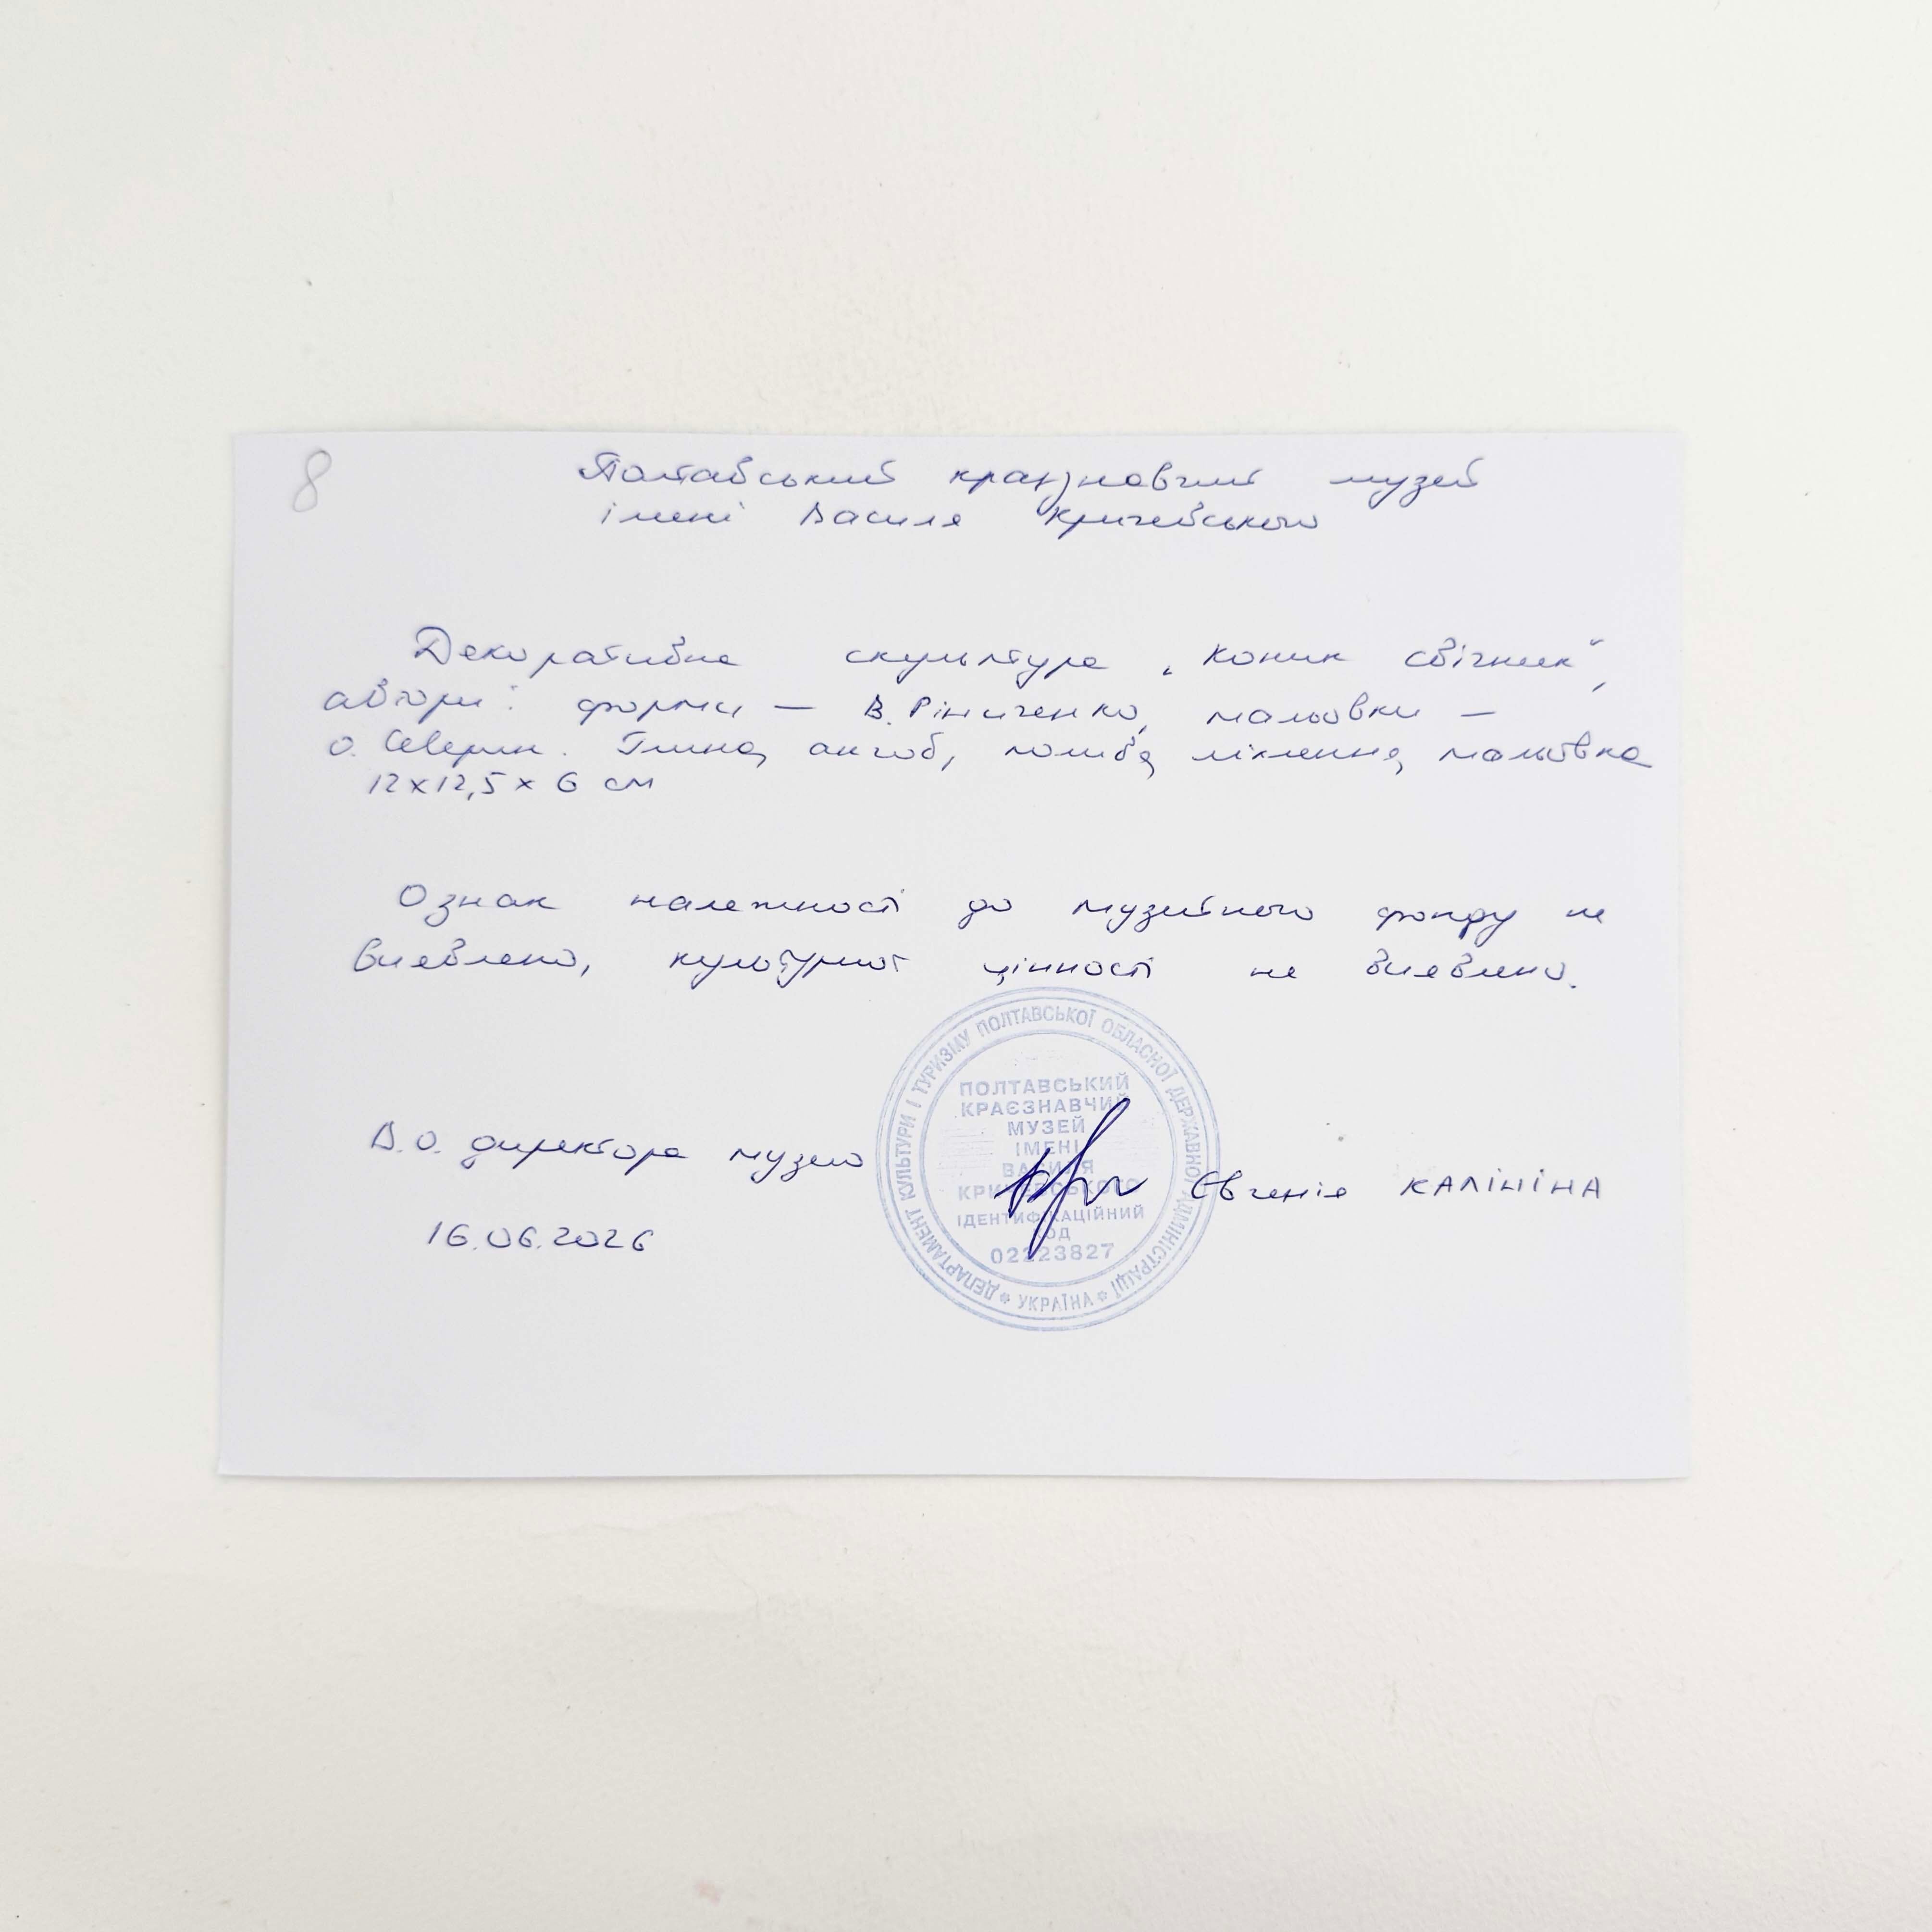 8
Полтавський краєзнавчий музей
імені Василя Кричевського
Декоративна скульптура „Коник свічник",
автори: форми — В. Ріниченко, мальовки —
О. Северин. Глина, ангоб, полива, ліплення, мальовка
12х12,5х6 см
Ознак належності до музейного фонду не
виявлено, культурної цінності не виявлено.
В.О. директора музею
Євгенія КАЛІНІНА
16.06.2026
ДЕПАРТАМЕНТ КУЛЬТУРИ І ТУРИЗМУ ПОЛТАВСЬКОЇ ОБЛАСНОЇ ДЕРЖАВНОЇ АДМІНІСТРАЦІЇ * УКРАЇНА *
ПОЛТАВСЬКИЙ
КРАЄЗНАВЧИЙ
МУЗЕЙ
ІМЕНІ
ВАСИЛЯ
КРИЧЕВСЬКОГО
ІДЕНТИФІКАЦІЙНИЙ
КОД
02223827